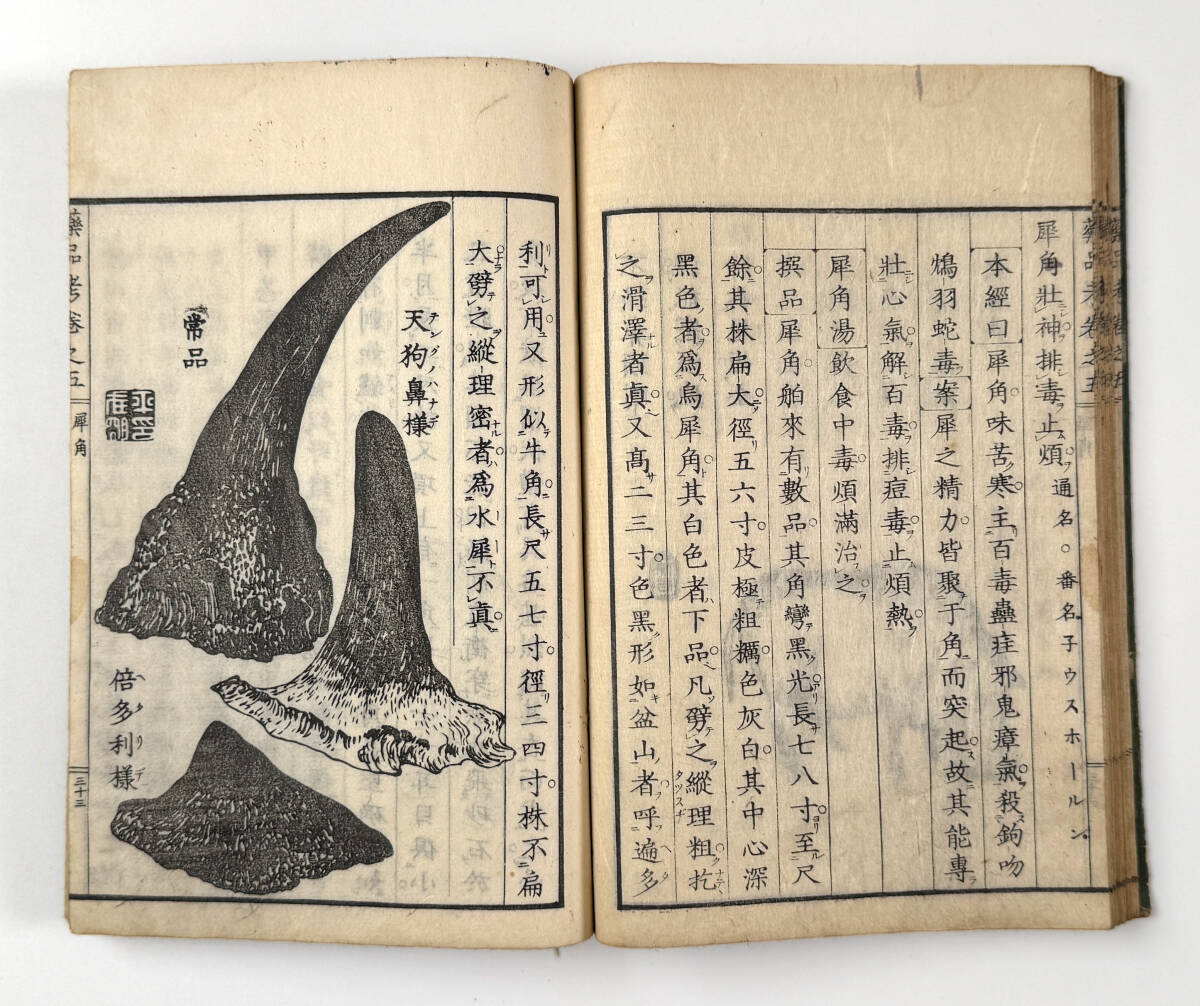 犀角壯神排毒止煩 通名○番名子ウスホールン
本經曰犀角味苦寒主百毒蠱疰邪鬼瘴氣殺鉤吻
鴆羽蛇毒案犀之精力皆聚于角而突起故其能專
壯心氣解百毒排痘毒止煩熱
犀角湯飲食中毒煩滿治之
撰品犀角舶來有數品其角彎黑光長七八寸至尺
餘其株扁大徑五六寸皮極粗糲色灰白其中心深
黑色者爲烏犀角其白色者下品凡劈之縱理粗扢
之滑澤者眞又高二三寸色黑形如盆山者呼遍多
利可用又形似牛角長尺五七寸徑三四寸株不扁
大劈之縱理密者爲水犀不眞
天狗鼻樣
テングノハナデ
常品
倍多利樣
ヘタリデ
藥品考卷之五
犀角
三十三